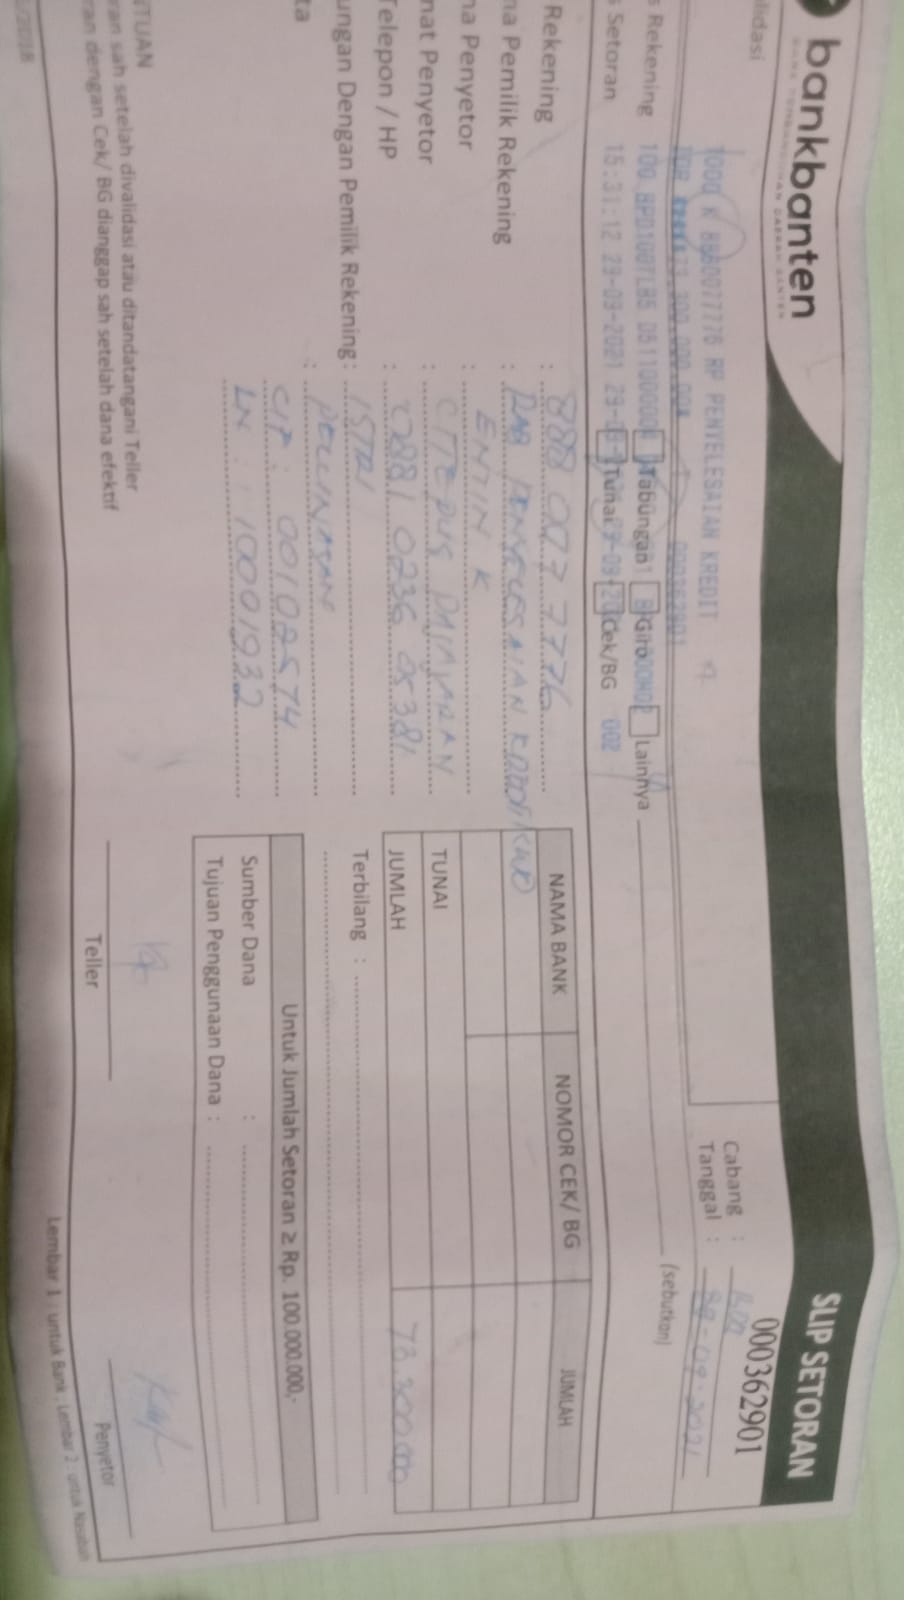 bankbanten
BANK PEMBANGUNAN DAERAH BANTEN
SLIP SETORAN
000362901
lidasi
1000 K 8880077776 RP PENYELESAIAN KREDIT
000362901
Cabang :
Tanggal : 29-09-2021
s Rekening
Tabungan
Giro
Lainnya
(sebutkan)
s Setoran
15:31:12 29-09-2021
Tunai
Cek/BG
002
Rekening : 888 007 7776
na Pemilik Rekening : RAB PENYELESAIAN
na Penyetor : ENTIN K
nat Penyetor : CITEPUS PAJAJARAN
Telepon / HP : 0881 0236 05381
ungan Dengan Pemilik Rekening : ISTRI
ta : PELUNASAN
CIF : 00102574
LN : 1001932
NAMA BANK
NOMOR CEK/ BG
JUMLAH
TUNAI
JUMLAH
73.300.000
Terbilang :
Untuk Jumlah Setoran ≥ Rp. 100.000.000,-
Sumber Dana :
Tujuan Penggunaan Dana :
NTUAN
ran sah setelah divalidasi atau ditandatangani Teller
ran dengan Cek/ BG dianggap sah setelah dana efektif
Teller
Penyetor
Lembar 1 : untuk Bank, Lembar 2 : untuk Nasabah
/2018